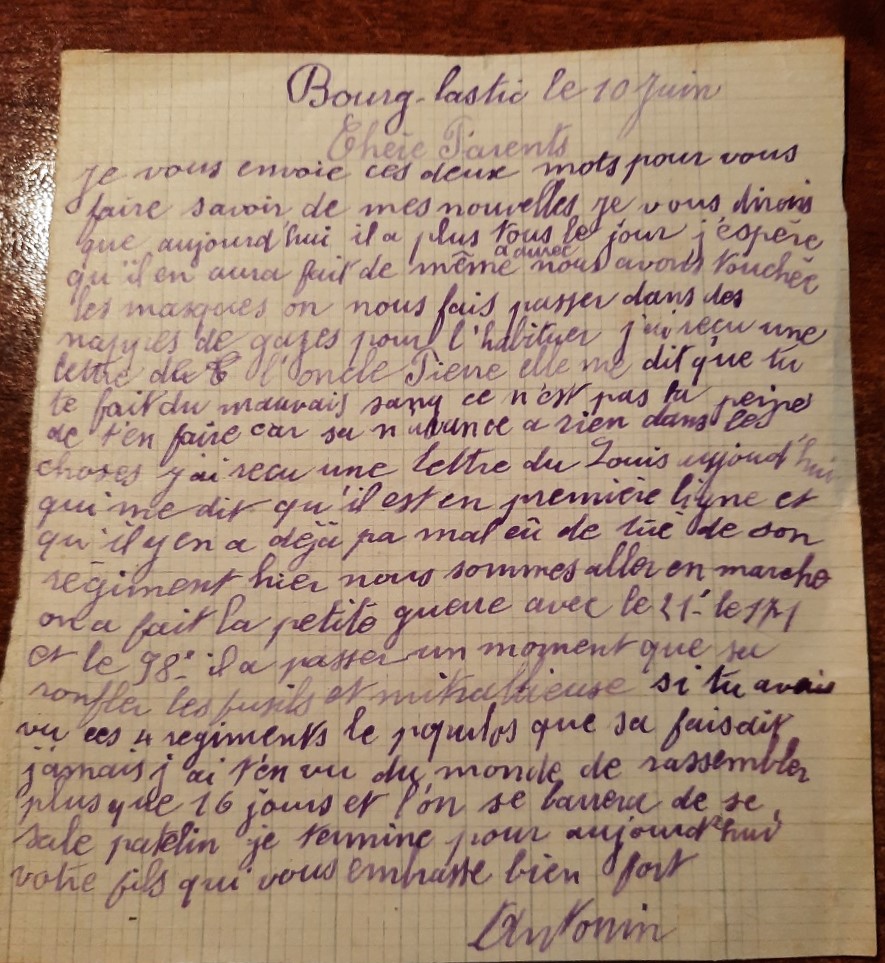 Bourg-lastic le 10 Juin
Chère Parents
je vous envoie ces deux mots pour vous
faire savoir de mes nouvelles je vous dirais
que aujourd'hui il a plus tous le jour j'espère
qu'il en aura fait de même nous avons touchée
les masques on nous fais passer dans des
nappes de gazes pour l'habituer j'ai reçu une
lettre de l'oncle Pierre elle me dit que tu
te fait du mauvais sang ce n'est pas ta peine
de t'en faire car sa n'avance a rien dans les
choses j'ai recu une lettre du Louis aujoud'hui
qui me dit qu'il est en première ligne et
qu'il y en a déjà pa mal eû de tué de son
régiment hier nous sommes aller en marche
on a fait la petite guerre avec le 21e le 171
et le 98e il a passer un moment que sa
ronfler les fusils et mitrallieuse si tu avais
vu ces 4 regiments le populos que sa faisait
jamais j'ai t'en vu du monde de rassembler
plus que 16 jours et l'on se barrera de se
sale patelin je termine pour aujourd'hui
votre fils qui vous embrasse bien fort
Antonin